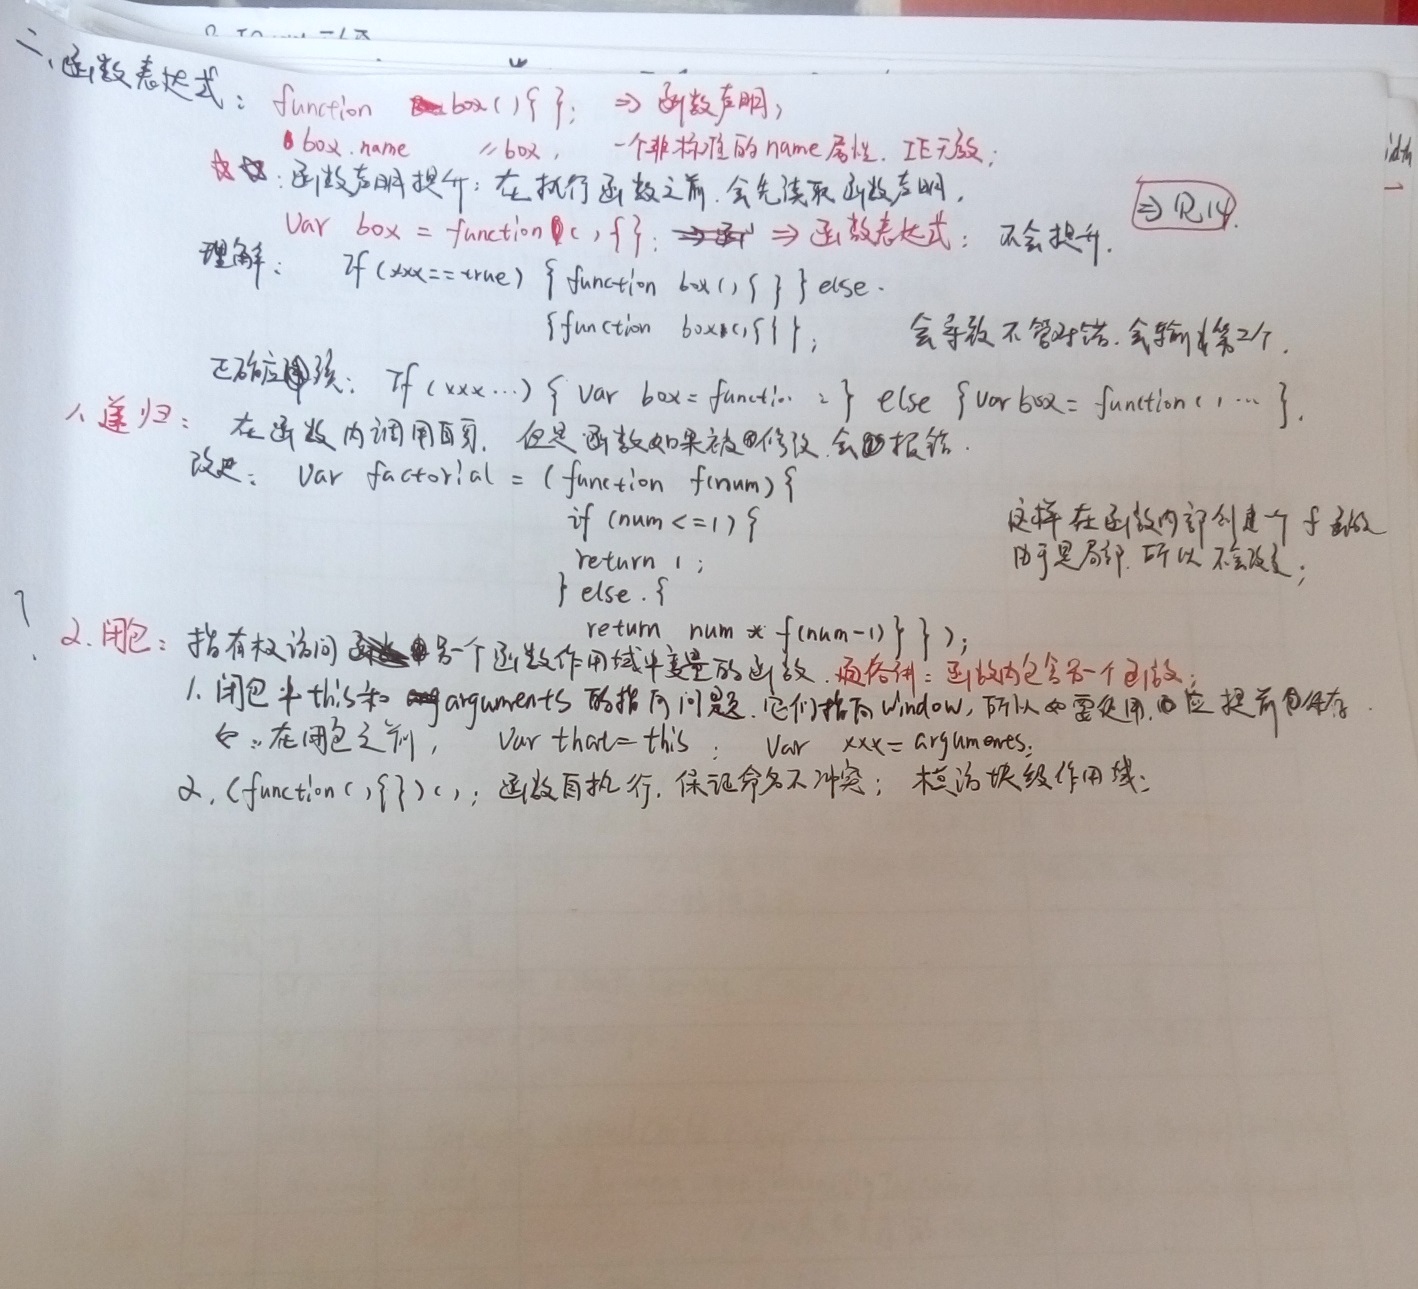 二、函数表达式: function box(){ }; ⇒ 函数声明;
box.name //box, 一个非标准的name属性. IE无效;
☆☆: 函数声明提升: 在执行函数之前. 会先读取函数声明.
Var box = function(){}; ⇒ 函数表达式: 不会提升. ⇒ P.14.
理解: If (xxx==true) { function box(){ } } else.
{function box(){}}; 会导致不管对错. 会输出第2个.
正确应该: If (xxx...) { Var box = function } else { Var box = function() ... }.
1. 递归: 在函数内调用自身. 但是函数如果被修改. 会报错.
改进: Var factorial = (function f(num) {
if (num <= 1) {
return 1;
} else. {
return num * f(num-1) } });
这样在函数内部创建个 f 函数
由于是局部. 所以不会改变;
2. 闭包: 指有权访问另一个函数作用域中变量的函数. 通俗讲: 函数内包含另一个函数;
1. 闭包中this和arguments的指向问题. 它们指向window, 所以如需使用. 应提前保存.
在闭包之前, Var that = this; Var xxx = arguments;
2. (function(){})(); 函数自执行. 保证命名不冲突; 模仿块级作用域;